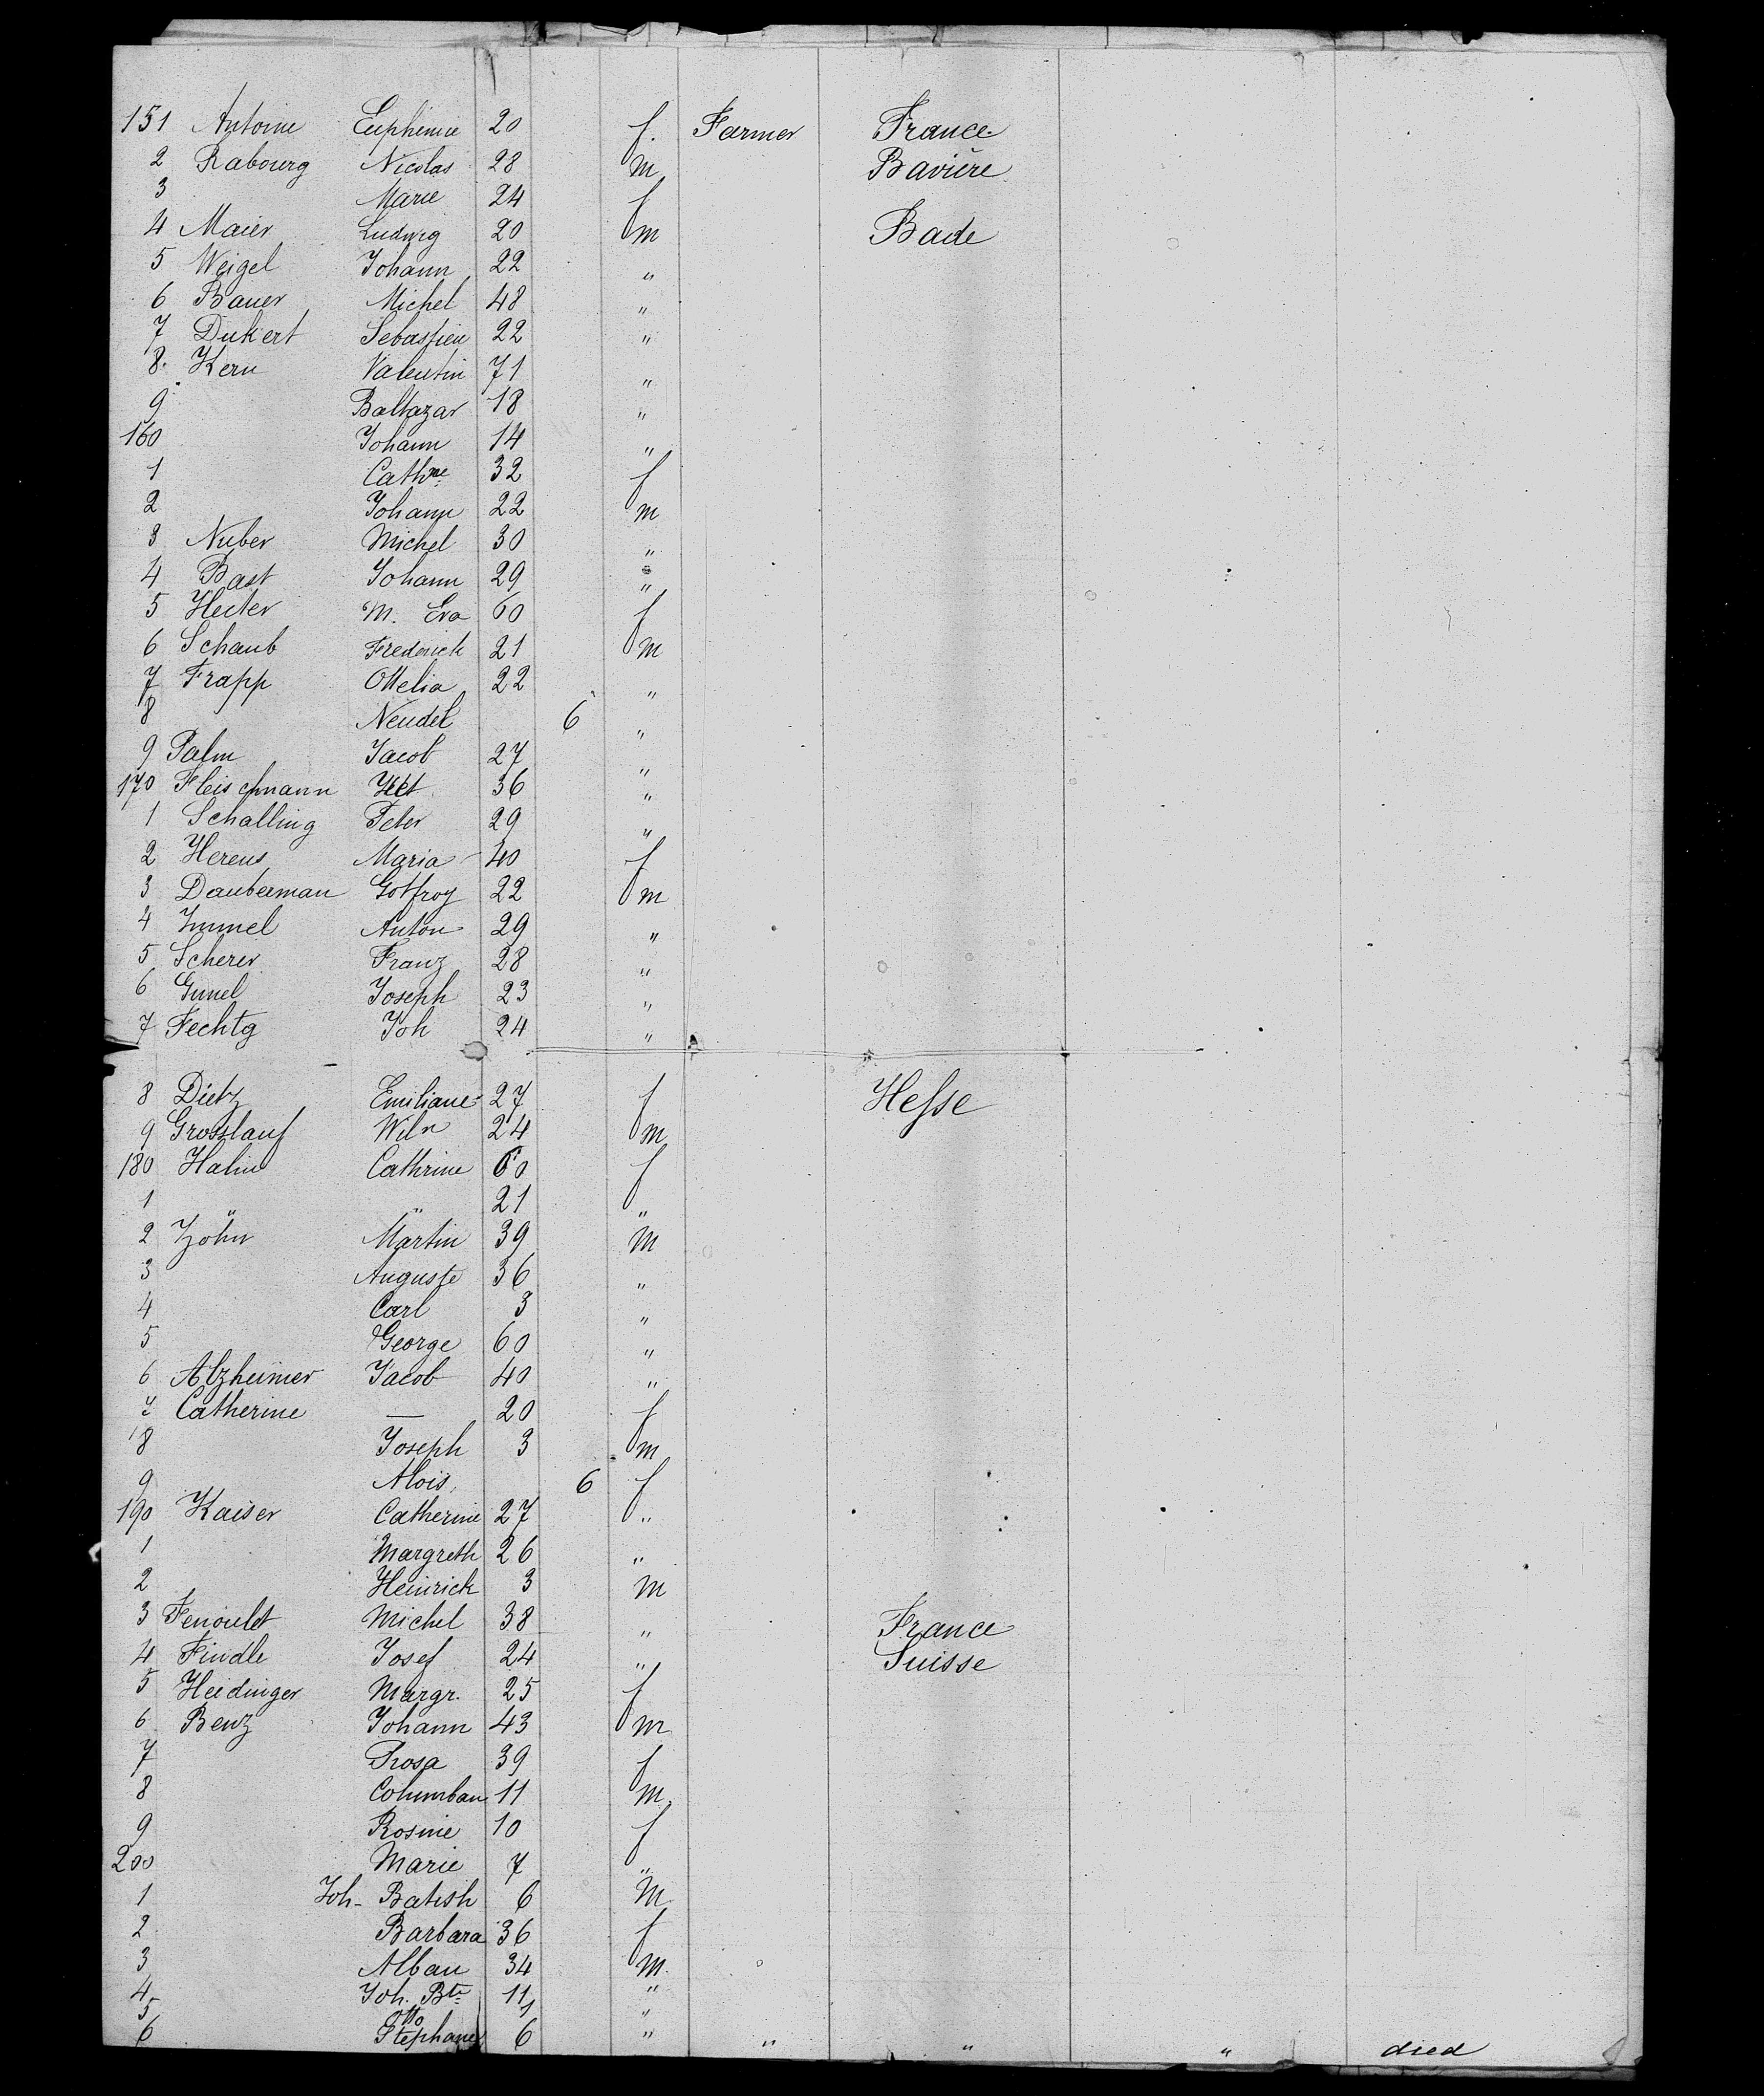 151 Antoine Euphemie 20 f. Farmer France
2 Rabourg Nicolas 28 m Bavière
3 Marie 24 f
4 Maier Ludwig 20 m Bade
5 Weigel Johann 22 "
6 Bauer Michel 48 "
7 Dukert Sebastien 22 "
8. Kern Valentin 71 "
9 Baltazar 18 "
160 Johann 14 "
1 Cathne 32 f
2 Johann 22 m
3 Nuber Michel 30 "
4 Bast Johann 29 "
5 Hecter M. Eva 60 f
6 Schaub Frederick 21 m
7 Frapp Ottelia 22 "
8 Neudel 6 "
9 Palm Jacob 27 "
170 Fleischmann 36 "
1 Schalling Peter 29 "
2 Herens Maria 40 f
3 Dauberman Gotfroy 22 m
4 Immel Anton 29 "
5 Scherer Franz 28 "
6 Joseph 23 "
7 Fechtg Joh 24 "
8 Dietz Emiliane 27 f Hesse
9 Grosslauf Wiln 24 m
180 Halm Cathrine 60 f
1 " " 21 "
2 Zöhn Martin 39 m
3 Auguste 36 "
4 Carl 3 "
5 George 60 "
6 Alzheimer Jacob 40 "
7 Catherine — 20 f
8 Joseph 3 m
9 Alois 6 f
190 Kaiser Catherine 27 "
1 Margreth 26 "
2 Heinrich 3 m
3 Fenoulet Michel 38 " France
4 Findle Josef 24 " Suisse
5 Heidinger Margr. 25 f
6 Benz Johann 43 m
7 Rosa 39 f
8 Columban 11 m
9 Rosine 10 f
200 Marie 7 "
1 Joh- Batish 6 m
2 Barbara 36 f
3 Alban 34 m
4 Joh. Bte 11 "
5 Otto 1 "
6 Stephane 6 " " " " died